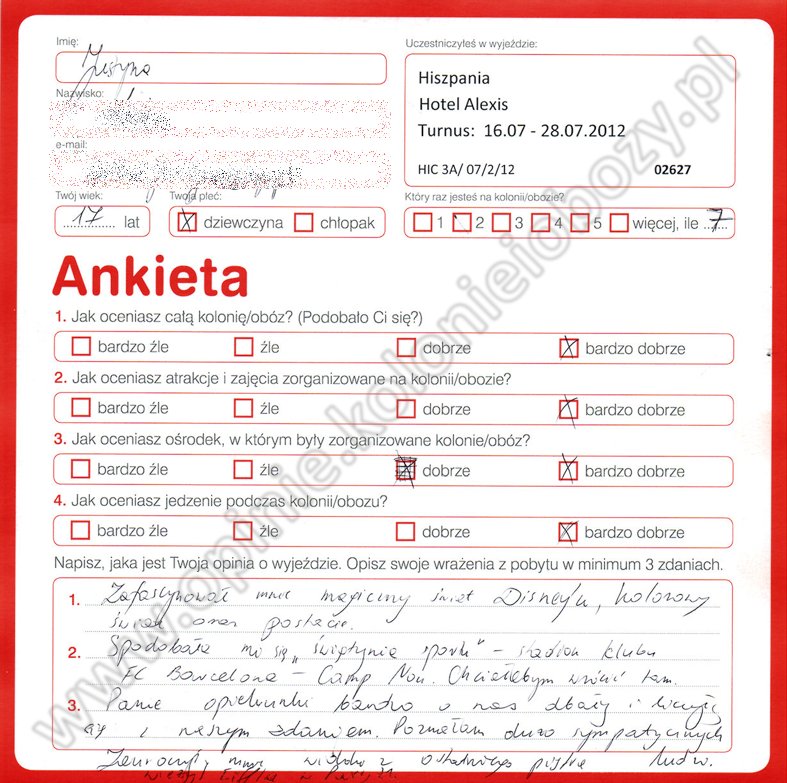 Imię:
Justyna
Uczestniczyłeś w wyjeździe:
Hiszpania
Hotel Alexis
Turnus: 16.07 - 28.07.2012
HIC 3A/ 07/2/12 02627
Nazwisko:
e-mail:
Twój wiek:
17 lat
Twoja płeć:
X dziewczyna chłopak
Który raz jesteś na kolonii/obozie?
1 2 3 4 5 więcej, ile 7
Ankieta
1. Jak oceniasz całą kolonię/obóz? (Podobało Ci się?)
bardzo źle źle dobrze X bardzo dobrze
2. Jak oceniasz atrakcje i zajęcia zorganizowane na kolonii/obozie?
bardzo źle źle dobrze X bardzo dobrze
3. Jak oceniasz ośrodek, w którym były zorganizowane kolonie/obóz?
bardzo źle źle dobrze X bardzo dobrze
4. Jak oceniasz jedzenie podczas kolonii/obozu?
bardzo źle źle dobrze X bardzo dobrze
Napisz, jaka jest Twoja opinia o wyjeździe. Opisz swoje wrażenia z pobytu w minimum 3 zdaniach.
1. Zafascynował mnie magiczny świat Disney'a, kolorowy
świat oraz postacie.
2. Spodobała mi się „świątynia sportu" - stadion klubu
FC Barcelona - Camp Nou. Chciałabym wrócić tam.
3. Panie opiekunki bardzo o nas dbały i liczyły
się z naszym zdaniem. Poznałam dużo sympatycznych
ludzi.
mnie widok z ostatniego piętra
wieży Eiffla w Paryżu.
www.opinie.kolonieiobozy.pl